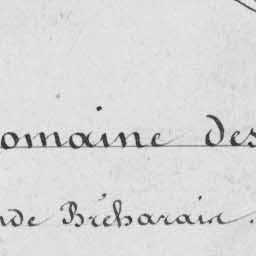 omaine des
nde Bréharaie.